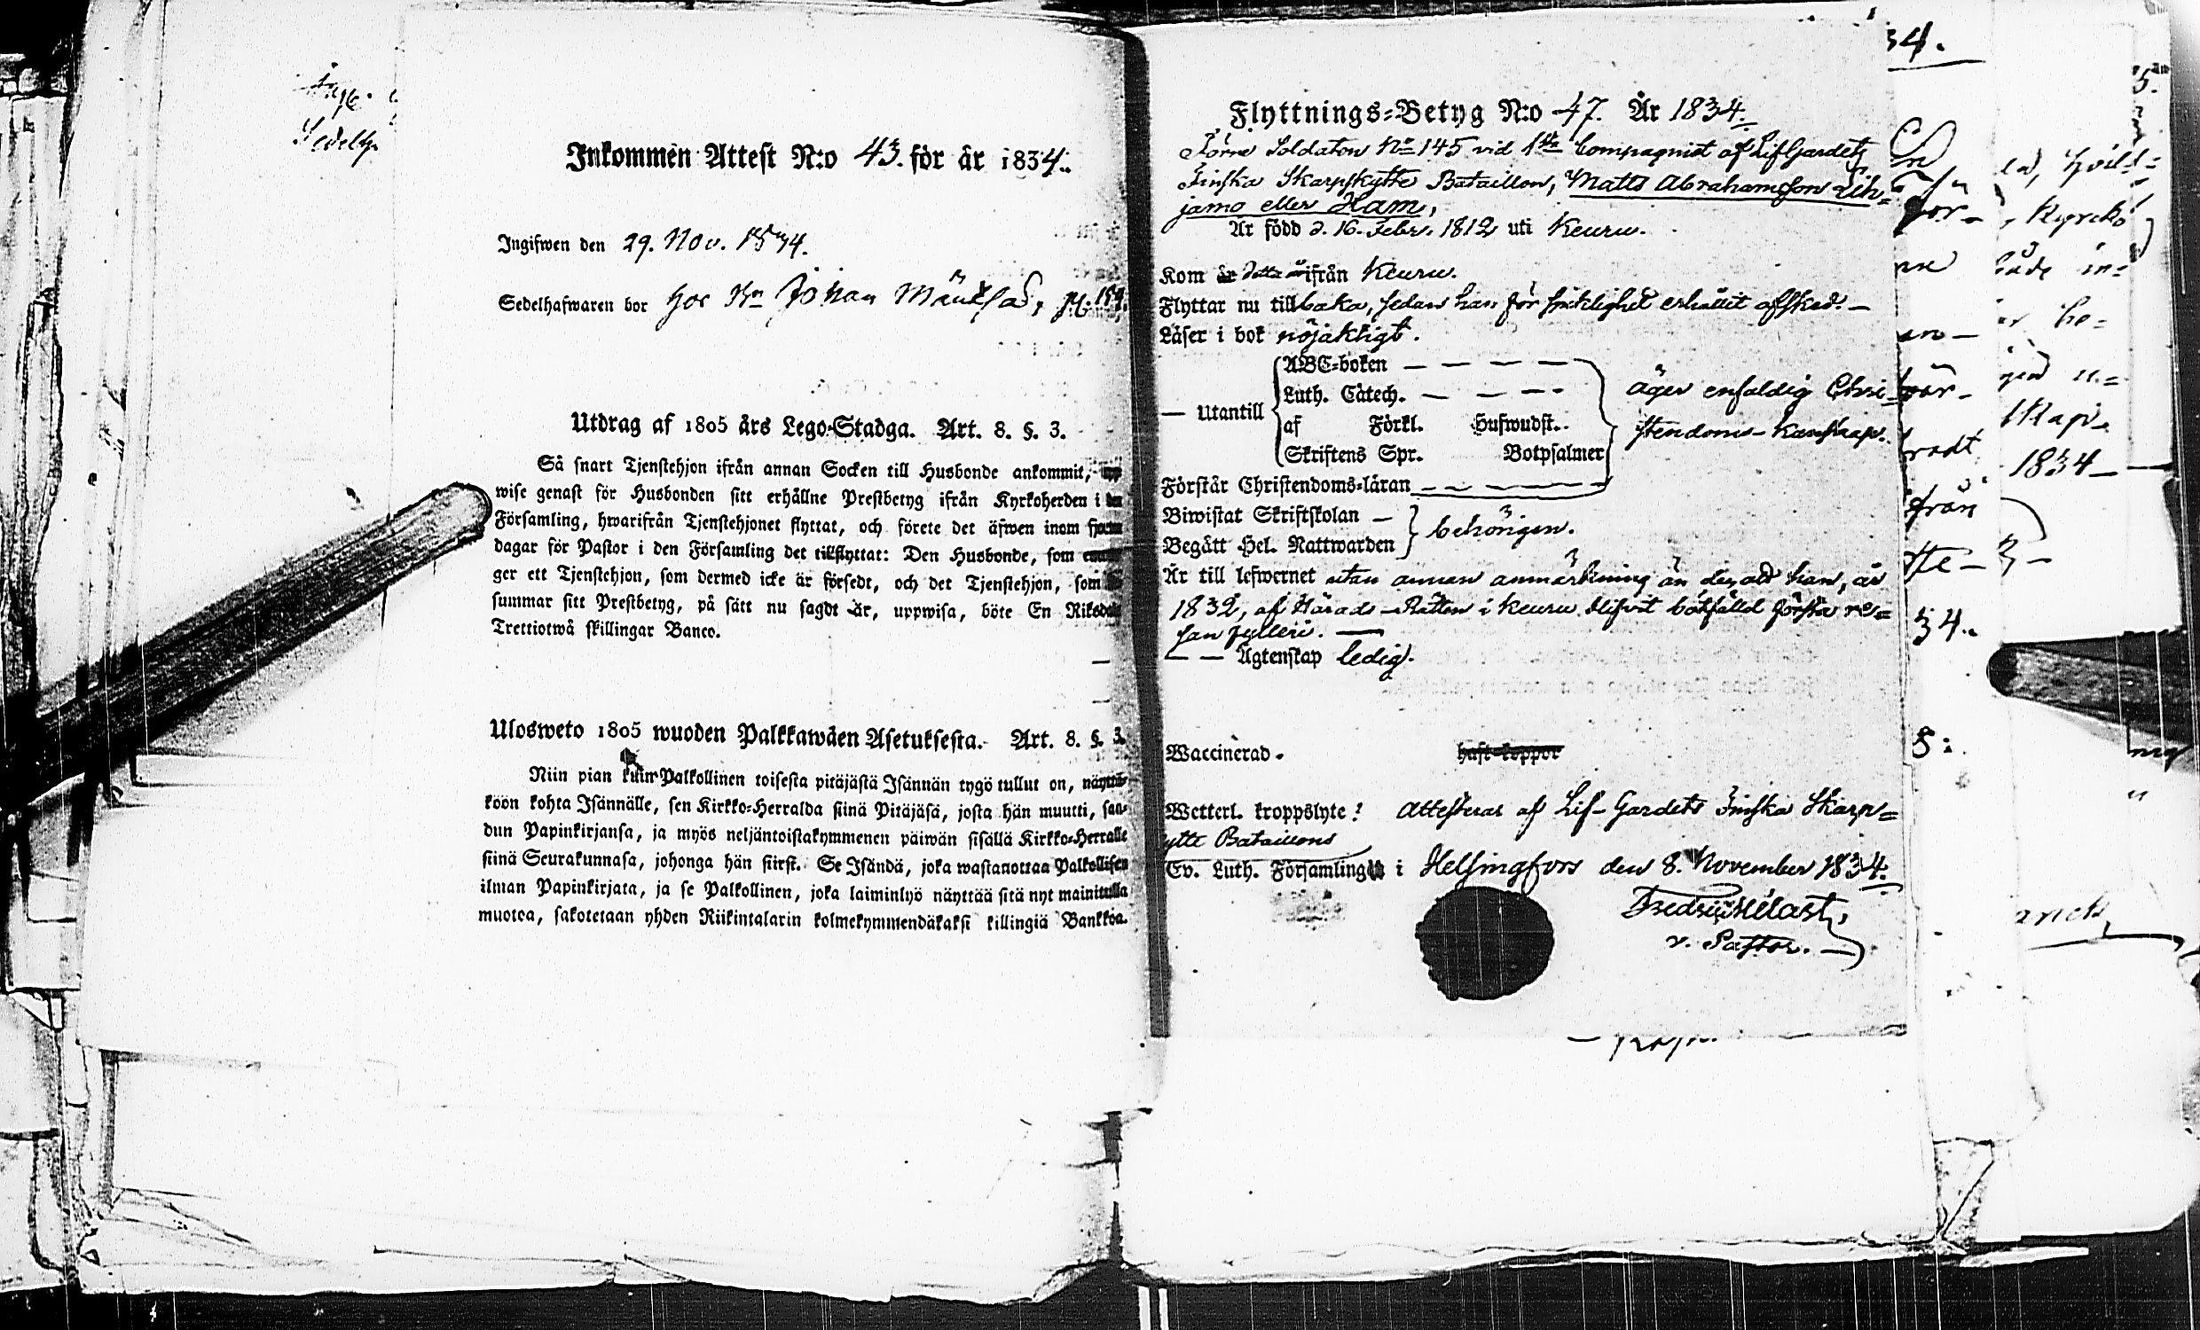 Inkommen Attest N:o 43. för år 1834.
Ingifwen den 29. Nov. 1834.
Sedelhafwaren bor hos Johan
Utdrag af 1805 års Lego-Stadga. Art. 8. §. 3.
Så snart Tjenstehjon ifrån annan Socken till Husbonde ankommit, upp
wise genast för Husbonden sitt erhållne Prestbetyg ifrån Kyrkoherden i den
Församling, hwarifrån Tjenstehjonet flyttat, och förete det äfwen inom fjorton
dagar för Pastor i den Församling det tillflyttat: Den Husbonde, som
ger ett Tjenstehjon, som dermed icke är försedt, och det Tjenstehjon, som
summar sitt Prestbetyg, på sätt nu sagdt är, uppwisa, böte En Riksdaler
Trettiotwå skillingar Banco.
Ulosweto 1805 wuoden Palkkawäen Asetuksesta. Art. 8. §. 3.
Niin pian kuin Palkollinen toisesta pitäjästä Isännän tygö tullut on, näyttä-
köön kohta Isännälle, sen Kirkko-Herralda siinä Pitäjäsä, josta hän muutti, saa-
dun Papinkirjansa, ja myös neljäntoistakymmenen päiwän sisällä Kirkko-Herralle
siinä Seurakunnasa, johonga hän siirst. Se Isändä, joka wastanottaa Palkollisen
ilman Papinkirjata, ja se Palkollinen, joka laiminlyö näyttää sitä nyt mainitulla
muotoa, sakotetaan yhden Riikintalarin kolmekymmendäkaksi killingiä Bankkoa.
Flyttnings-Betyg N:o 47. År 1834.
Förre Soldaten No 145 vid 1sta Compagniet af LifGardets
Finska Skarpskytte Bataillon, Matts Abrahamsson Lih-
jamo eller Ham,
Är född d. 16. Febr. 1812 uti Keuru.
Kom år detta år ifrån Keuru.
Flyttar nu tillbaka, sedan han för sjuklighet erhållit afsked. —
Läser i bok nöjaktigt.
— Utantill
ABC-boken — — — —
Luth. Catech. — — — —
af Förkl. Hufwudst.
Skriftens Spr. Botpsalmer
äger enfaldig Chri-
stendoms-kunskap.
Förstår Christendoms-läran — — — —
Biwistat Skriftskolan —
Begått Hel. Nattwarden
behörigen.
Är till lefwernet utan annan anmärkning än den, att han, år
1832, af Härads-Rätten i Keuru blifvit bötfälld första re-
san fylleri. —
— — Ägtenskap ledig.
Waccinerad.
haft koppor
Wetterl. kroppslyte: Attesteras af Lif-Gardets Finska Skarp-
ytte Bataillons
Ev. Luth. Församling i Helsingfors den 8. November 1834.
v. Pastor.
34.
1834 —